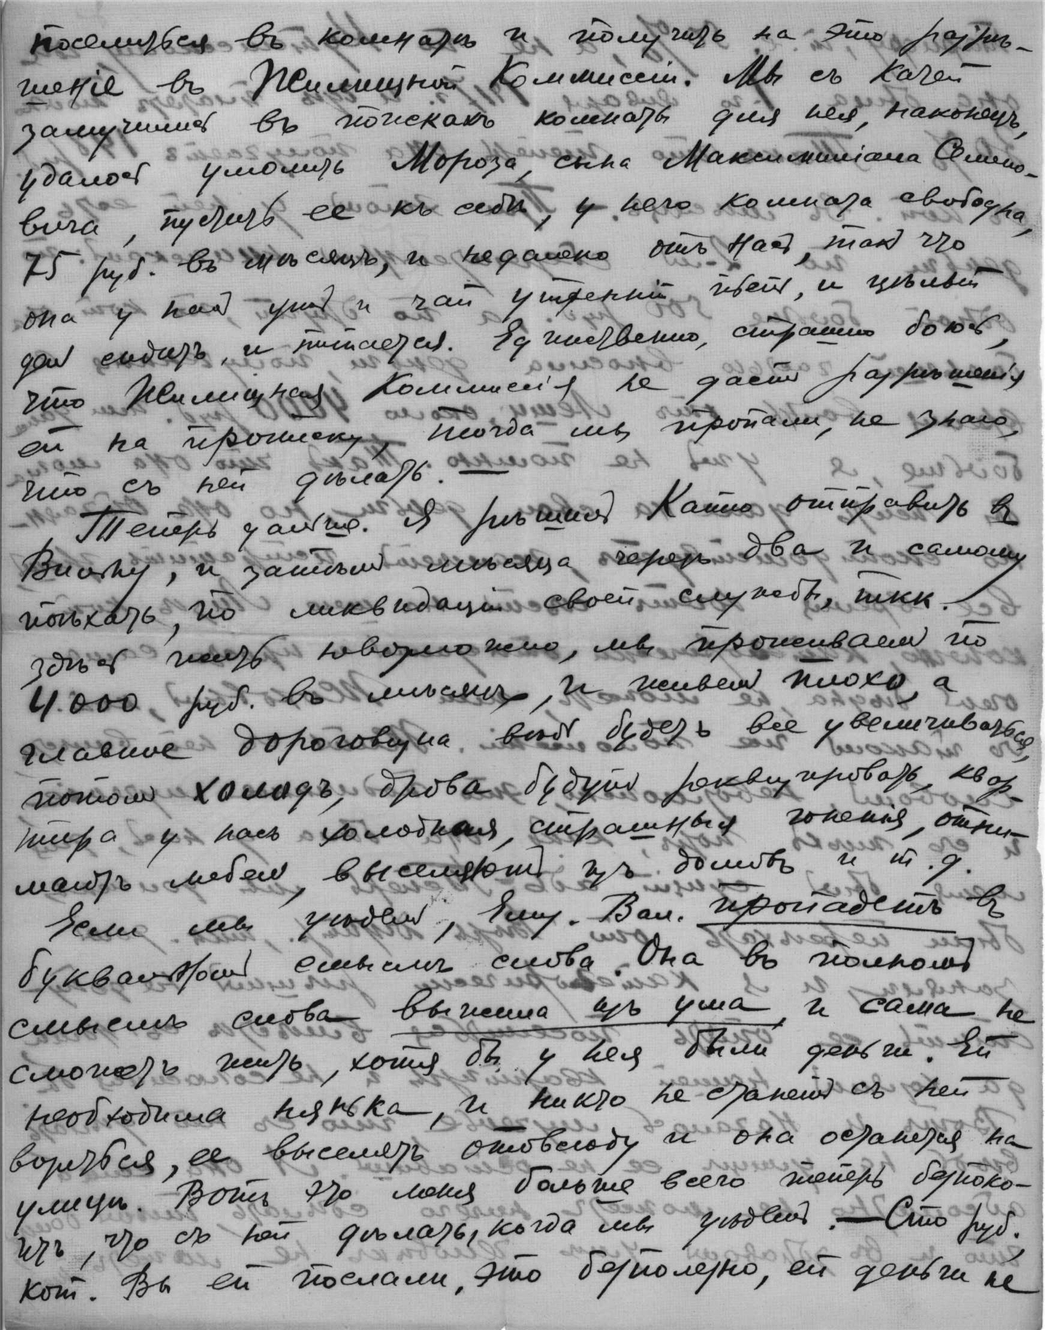 поселиться въ комнатѣ и получить на это разрѣ-
шеніе въ Жилищной Коммиссіи. Мы съ Катей
замучились въ поискахъ комнаты для нея, наконецъ,
удалось умолить Мороза, сына Максимиліана Семено-
вича, пустить ее къ себѣ, у него комната свободна,
75 руб. въ мѣсяцъ, и недалеко отъ насъ, такъ что
она у насъ ужъ и чай утренній пьетъ, и цѣлый
день сидитъ и питается. Единственно, страшно боюсь,
что Жилищная Коммиссія не дастъ разрѣшенія
ей на прописку, тогда мы пропали, не знаю,
что съ ней дѣлать. —
Теперь дальше. Я рѣшилъ Катю отправить въ
Вятку, и затѣмъ мѣсяца черезъ два и самому
поѣхать, по ликвидаціи своей службы, т.к.
здѣсь жить невозможно, мы проживаемъ по
4.000 руб. въ мѣсяцъ, и живемъ плохо, а
главное дороговизна всё будетъ все увеличиваться,
потомъ холодъ, дрова будутъ реквизировать, квар-
тира у насъ холодная, страшныя гоненія, отни-
маютъ мебель, выселяютъ изъ домовъ и т.д.
Если мы уѣдемъ, Ели. Вал. пропадетъ въ
буквальномъ смыслѣ слова. Она въ полномъ
смыслѣ слова выжила изъ ума, и сама не
сможетъ жить, хотя бы у нея были деньги. Ей
необходима нянька, и никто не станетъ съ ней
возиться, ее выселятъ отовсюду и она останется на
улицѣ. Вотъ что меня больше всего теперь безпоко-
итъ, что съ ней дѣлать, когда мы уѣдемъ. — Сто руб.
кот. Вы ей послали, это безполезно, ей деньги не